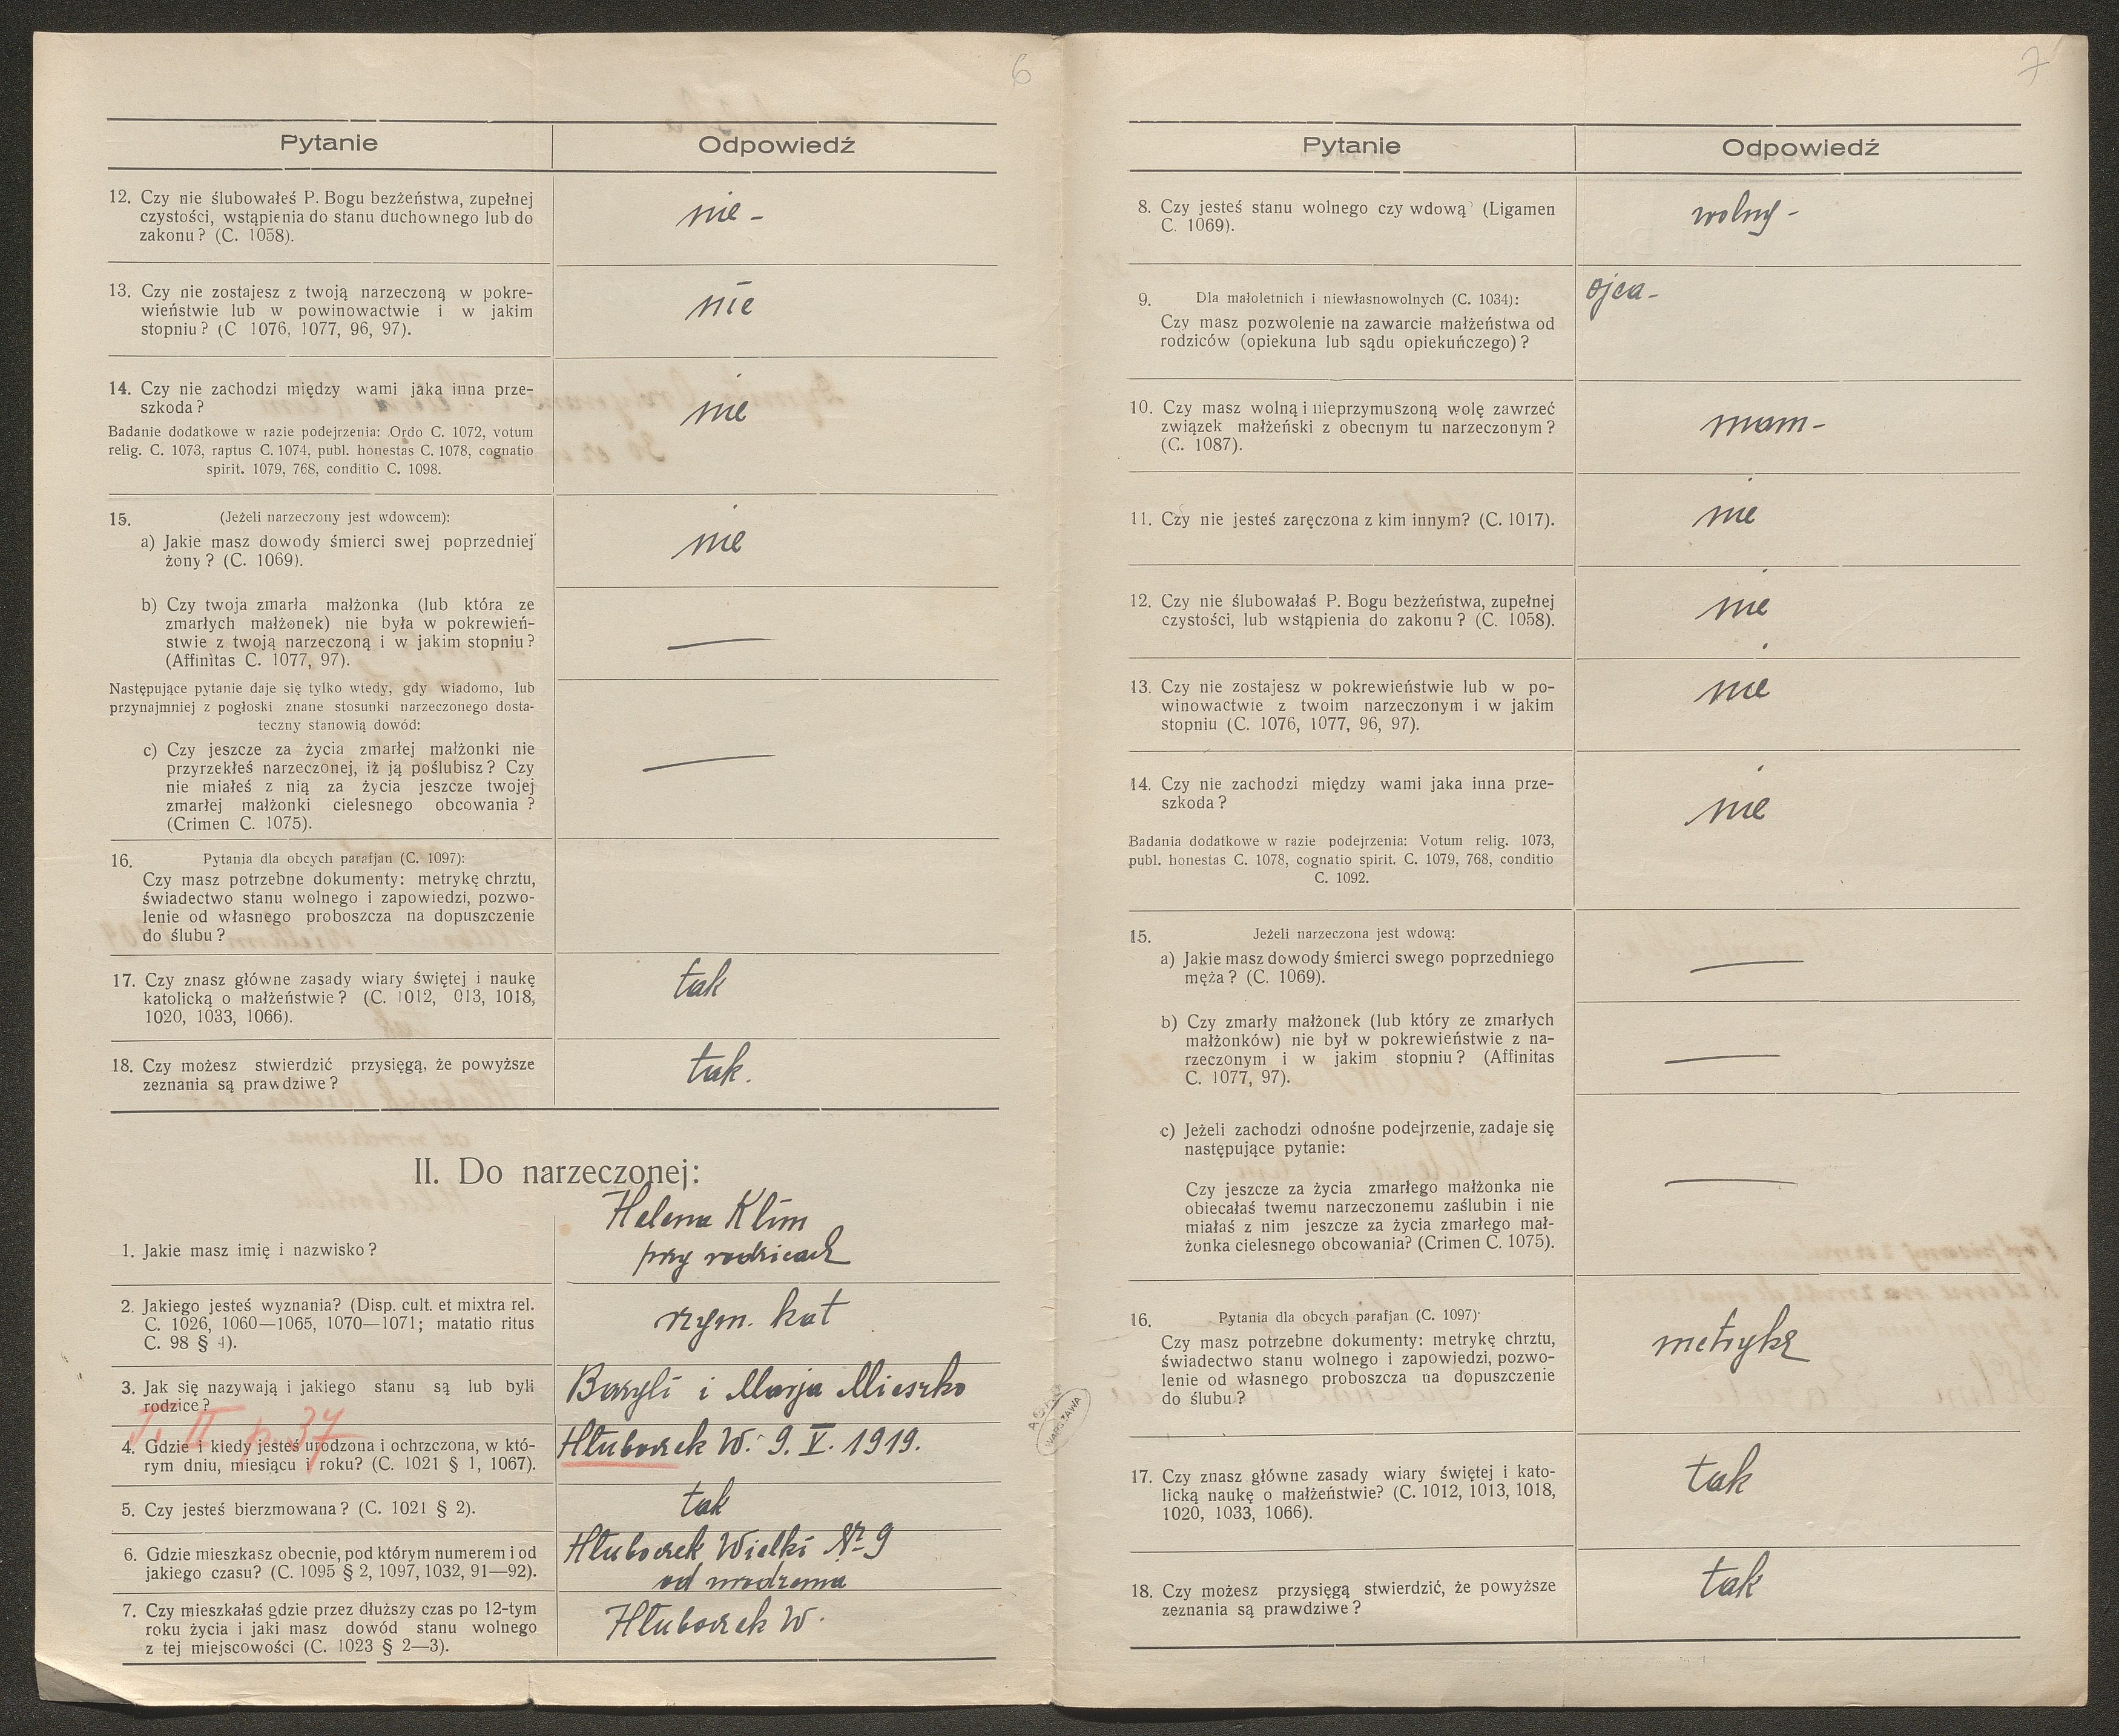 6
Pytanie
Odpowiedź
12. Czy nie ślubowałeś P. Bogu bezżeństwa, zupełnej
czystości, wstąpienia do stanu duchownego lub do
zakonu? (C. 1058).
nie -
13. Czy nie zostajesz z twoją narzeczoną w pokre-
wieństwie lub w powinowactwie i w jakim
stopniu? (C 1076, 1077, 96, 97).
nie
14. Czy nie zachodzi między wami jaka inna prze-
szkoda?
Badanie dodatkowe w razie podejrzenia: Ordo C. 1072, votum
relig. C. 1073, raptus C. 1074, publ. honestas C. 1078, cognatio
spirit. 1079, 768, conditio C. 1098.
nie
15. (Jeżeli narzeczony jest wdowcem):
a) Jakie masz dowody śmierci swej poprzedniej
żony? (C. 1069).
nie
b) Czy twoja zmarła małżonka (lub która ze
zmarłych małżonek) nie była w pokrewień-
stwie z twoją narzeczoną i w jakim stopniu?
(Affinitas C. 1077, 97).
Następujące pytanie daje się tylko wtedy, gdy wiadomo, lub
przynajmniej z pogłoski znane stosunki narzeczonego dosta-
teczny stanowią dowód:
c) Czy jeszcze za życia zmarłej małżonki nie
przyrzekłeś narzeczonej, iż ją poślubisz? Czy
nie miałeś z nią za życia jeszcze twojej
zmarłej małżonki cielesnego obcowania?
(Crimen C. 1075).
16. Pytania dla obcych parafjan (C. 1097):
Czy masz potrzebne dokumenty: metrykę chrztu,
świadectwo stanu wolnego i zapowiedzi, pozwo-
lenie od własnego proboszcza na dopuszczenie
do ślubu?
17. Czy znasz główne zasady wiary świętej i naukę
katolicką o małżeństwie? (C. 1012, 013, 1018,
1020, 1033, 1066).
tak
18. Czy możesz stwierdzić przysięgą, że powyższe
zeznania są prawdziwe?
tak.
II. Do narzeczonej:
1. Jakie masz imię i nazwisko?
Helena Klim
przy rodzicach
2. Jakiego jesteś wyznania? (Disp. cult. et mixtra rel.
C. 1026, 1060—1065, 1070—1071; matatio ritus
C. 98 § 4).
rzym. kat
3. Jak się nazywają i jakiego stanu są lub byli
rodzice?
Bazyli i Marja Mieszko
T. II p. 37
4. Gdzie i kiedy jesteś urodzona i ochrzczona, w któ-
rym dniu, miesiącu i roku? (C. 1021 § 1, 1067).
Hłuboczek W. 9. V. 1919.
5. Czy jesteś bierzmowana? (C. 1021 § 2).
tak
6. Gdzie mieszkasz obecnie, pod którym numerem i od
jakiego czasu? (C. 1095 § 2, 1097, 1032, 91—92).
Hłuboczek Wielki Nr 9
od urodzenia
7. Czy mieszkałaś gdzie przez dłuższy czas po 12-tym
roku życia i jaki masz dowód stanu wolnego
z tej miejscowości (C. 1023 § 2—3).
Hłuboczek W.
7
Pytanie
Odpowiedź
8. Czy jesteś stanu wolnego czy wdową? (Ligamen
C. 1069).
wolny -
9. Dla małoletnich i niewłasnowolnych (C. 1034):
Czy masz pozwolenie na zawarcie małżeństwa od
rodziców (opiekuna lub sądu opiekuńczego)?
ojca -
10. Czy masz wolną i nieprzymuszoną wolę zawrzeć
związek małżeński z obecnym tu narzeczonym?
(C. 1087).
mam -
11. Czy nie jesteś zaręczona z kim innym? (C. 1017).
nie
12. Czy nie ślubowałaś P. Bogu bezżeństwa, zupełnej
czystości, lub wstąpienia do zakonu? (C. 1058).
nie
13. Czy nie zostajesz w pokrewieństwie lub w po-
winowactwie z twoim narzeczonym i w jakim
stopniu (C. 1076, 1077, 96, 97).
nie
14. Czy nie zachodzi między wami jaka inna prze-
szkoda?
Badania dodatkowe w razie podejrzenia: Votum relig. 1073,
publ. honestas C. 1078, cognatio spirit. C. 1079, 768, conditio
C. 1092.
nie
15. Jeżeli narzeczona jest wdową:
a) Jakie masz dowody śmierci swego poprzedniego
męża? (C. 1069).
b) Czy zmarły małżonek (lub który ze zmarłych
małżonków) nie był w pokrewieństwie z na-
rzeczonym i w jakim stopniu? (Affinitas
C. 1077, 97).
c) Jeżeli zachodzi odnośne podejrzenie, zadaje się
następujące pytanie:
Czy jeszcze za życia zmarłego małżonka nie
obiecałaś twemu narzeczonemu zaślubin i nie
miałaś z nim jeszcze za życia zmarłego mał-
żonka cielesnego obcowania? (Crimen C. 1075).
16. Pytania dla obcych parafjan (C. 1097)
Czy masz potrzebne dokumenty: metrykę chrztu,
świadectwo stanu wolnego i zapowiedzi, pozwo-
lenie od własnego proboszcza na dopuszczenie
do ślubu?
metrykę
WARSZAWA
17. Czy znasz główne zasady wiary świętej i kato-
licką naukę o małżeństwie? (C. 1012, 1013, 1018,
1020, 1033, 1066).
tak
18. Czy możesz przysięgą stwierdzić, że powyższe
zeznania są prawdziwe?
tak